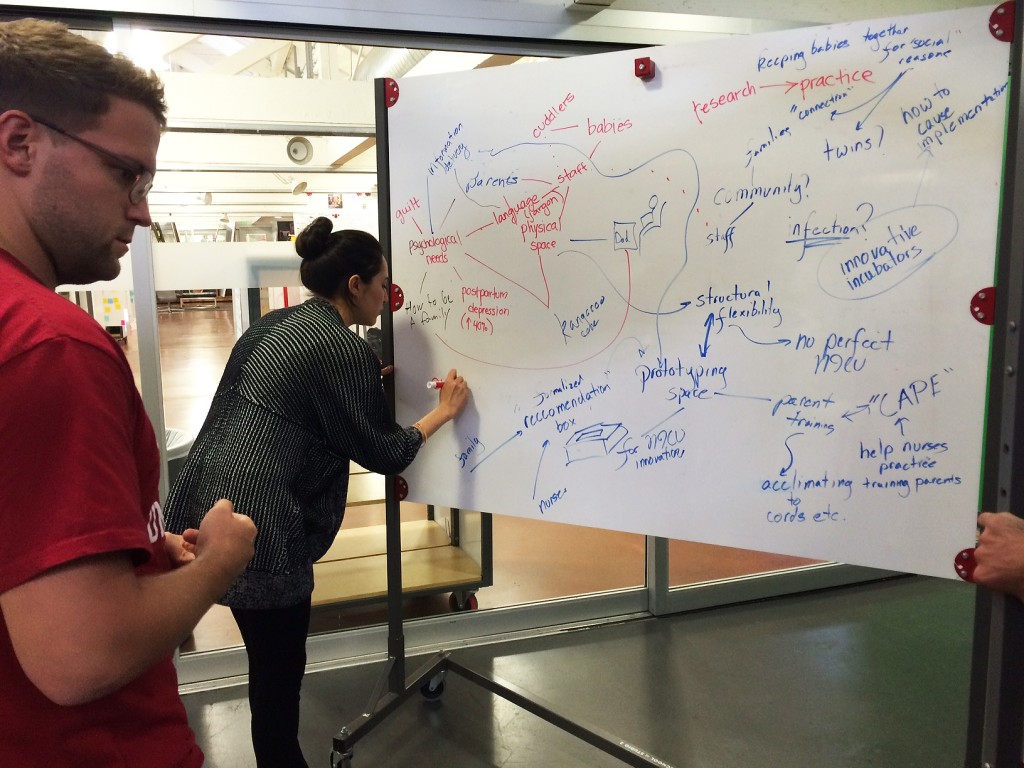 keeping babies together
for "social"
reasons
research → practice
"connection"
families
twins?
how to
cause
implementation
cuddlers
babies
information
delivery
parents
staff
guilt
language
jargon
physical
space
psychological
needs
community?
staff
infection?
innovative
incubators
How to be
a family
postpartum
depression
(↑40%)
structural
flexibility
no perfect
NICU
prototyping
space
parent
training
"CAPE"
help nurses
practice
training parents
acclimating
to
cords etc.
reccomendation"
box
family
nurse
for NICU
innovations